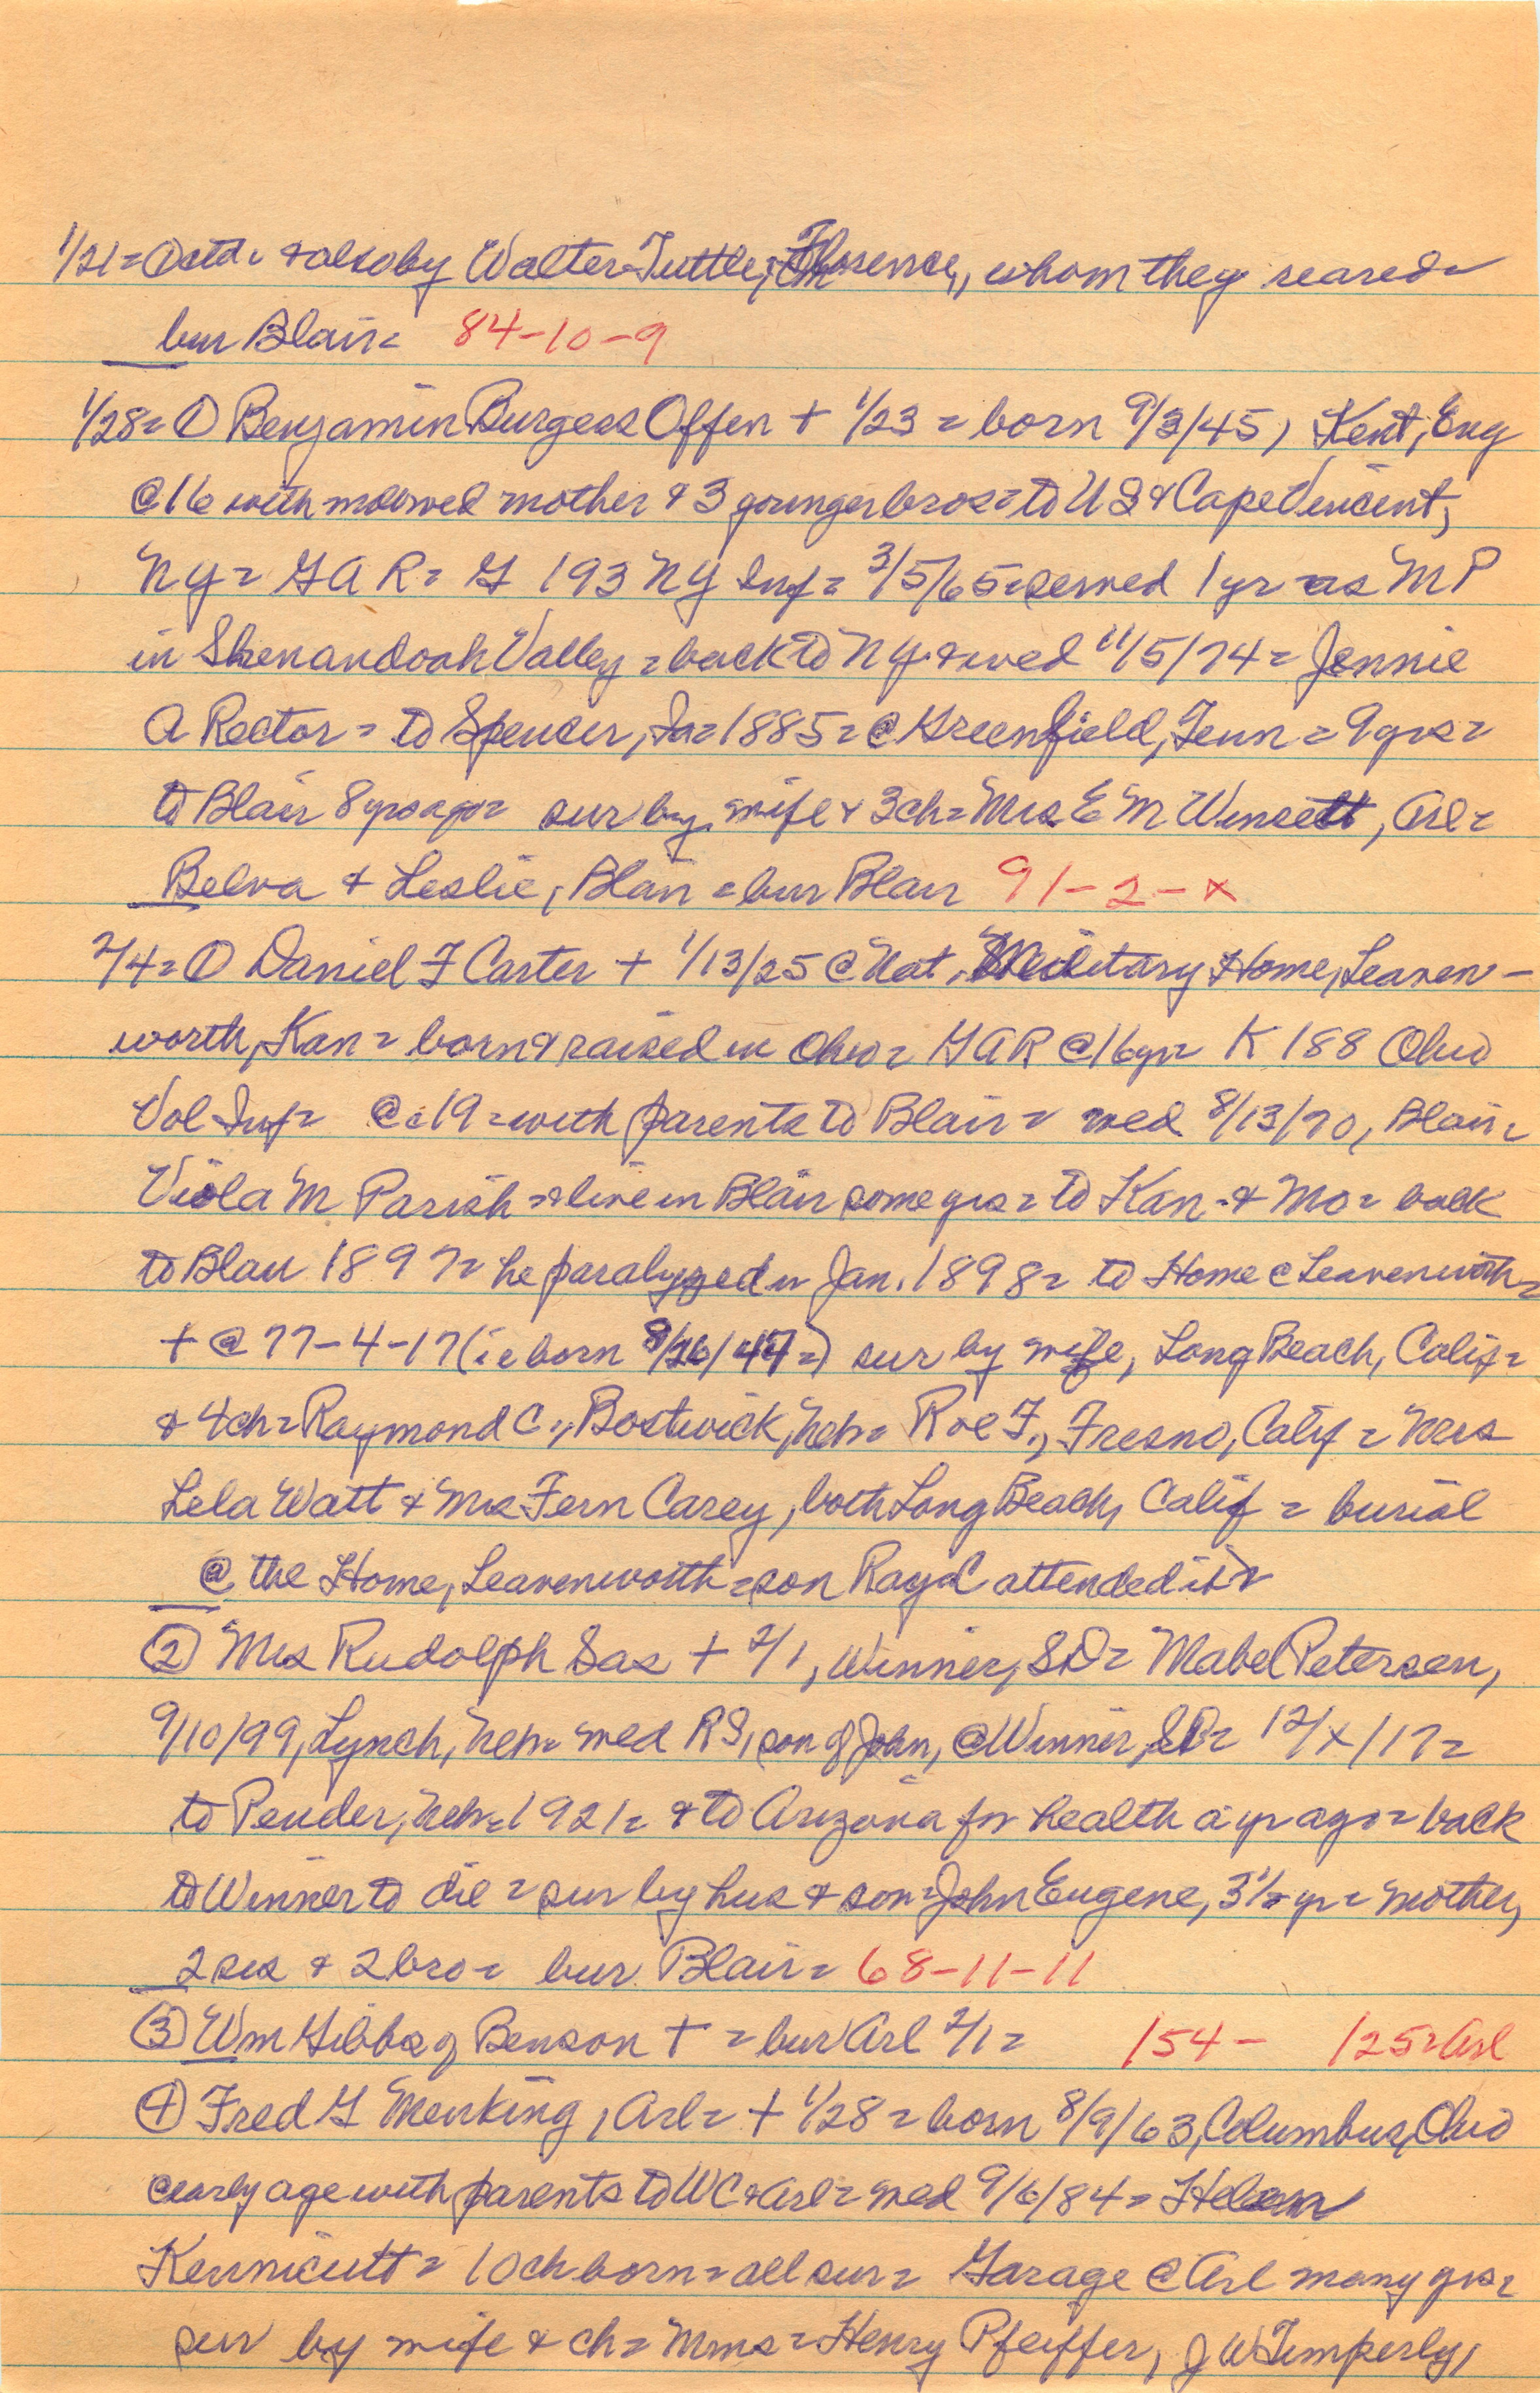 1/21= ① ctd. & also by Walter Tuttle, Florence, whom they reared=
bur Blair= 84-10-9
1/28= ① Benjamin Burgess Offen + 1/23 = born 9/3/45, Kent, Eng
@ 16 with widowed mother & 3 younger bros= to US & Cape Vincent,
NY= GAR= G 193 NY Inf= 3/5/65= served 1 yr as MP
in Shenandoah Valley = back to NY & wed 11/5/74= Jennie
A Rector = to Spencer, Ia= 1885= @ Greenfield, Tenn = 9 yrs=
to Blair 8 yrs ago= sur by wife & 3 ch= Mrs E M Winsett, Arl=
Belva & Leslie, Blair = bur Blair 91-2-x
2/4= ① Daniel F Carter + 1/13/25 @ Nat. Military Home, Leaven-
worth, Kan = born & raised in Ohio= GAR @ 16 yr= K 188 Ohio
Vol Inf= @ c 19 = with parents to Blair = wed 8/13/70, Blair=
Viola M Parish = & live in Blair some yrs = to Kan. & Mo= back
to Blair 1897= he paralyzed in Jan. 1898= to Home @ Leavenworth=
+ @ 77-4-17 (ie born 8/26/47=) sur by wife, Long Beach, Calif=
& 4 ch= Raymond C., Bostwick, Neb= Roe F., Fresno, Calif = Mrs
Lela Watt & Mrs Fern Carey, both Long Beach, Calif = burial
@ the Home, Leavenworth = son Ray C attended it=
② Mrs Rudolph Sas + 2/1, Winner, SD= Mabel Petersen,
9/10/99, Lynch, Neb= wed RS, son of John, @ Winner, SD= 12/x/17=
to Pender, Neb= 1921= & to Arizona for health a yr ago= back
to Winner to die = sur by hus & son= John Eugene, 3 1/2 yr= mother,
2 sis & 2 bro= bur Blair= 68-11-11
③ Wm Gibbs of Benson + = bur Arl 2/1= 154- 125= Arl
④ Fred G Menking, Arl= + 1/28 = born 8/9/63, Columbus, Ohio
@ early age with parents to WC & Arl= wed 9/6/84= Helen
Kennicutt= 10 ch born= all sur= Garage @ Arl many yrs=
sur by wife & ch= Mmes= Henry Pfeiffer, J W Timperly,